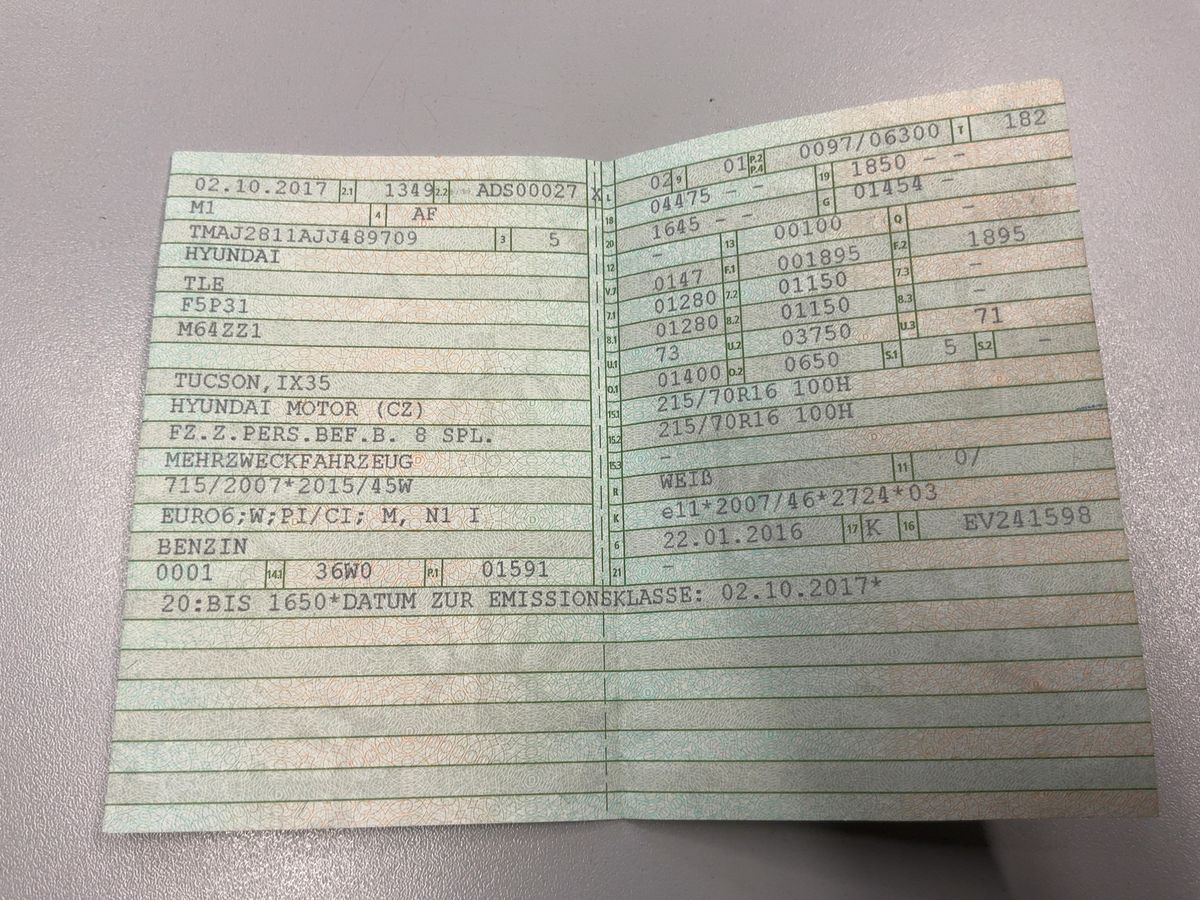 02.10.2017 2.1 1349 2.2 ADS00027 X
M1 4 AF
TMAJ2811AJJ489709 3 5
HYUNDAI
TLE
F5P31
M64ZZ1
TUCSON,IX35
HYUNDAI MOTOR (CZ)
FZ.Z.PERS.BEF.B. 8 SPL.
MEHRZWECKFAHRZEUG
715/2007*2015/45W
EURO6;W;PI/CI; M, N1 I
BENZIN
0001 14.1 36W0 P.1 01591
L 02 9 01 P.2 P.4 0097/06300 T 182
18 04475 - - 19 1850 - -
20 1645 - - G 01454
12 - 13 00100 Q -
V.7 0147 F.1 001895 F.2 1895
7.1 01280 7.2 01150 7.3 -
8.1 01280 8.2 01150 8.3 -
U.1 73 U.2 03750 U.3 71
O.1 01400 O.2 0650 S.1 5 S.2 -
15.1 215/70R16 100H
15.2 215/70R16 100H
15.3 -
R WEIß 11 0/
K e11*2007/46*2724*03
6 22.01.2016 17 K 16 EV241598
21 -
20:BIS 1650*DATUM ZUR EMISSIONSKLASSE: 02.10.2017*